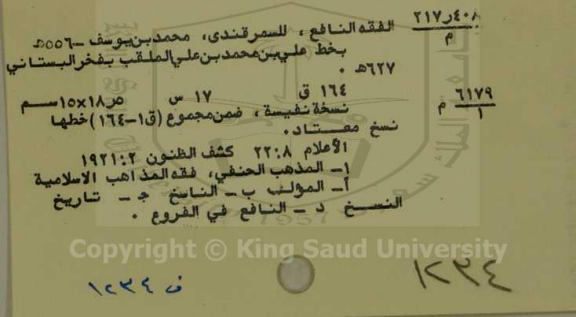 ٢١٧ر٤٠٨
م
الفقه النافع ، للسمرقندى، محمد بن يوسف -٥٥٦ھ
بخط علي بن محمد بن علي الملقب بفخر البستاني
٦٢٧ھ .
١٦٤ ق ١٧ س ١٨ر٥×١٥سم
٦١٧٩
١ م
نسخة نفيسة ، ضمن مجموع (ق١-١٦٤) خطها
نسخ معتاد.
الأعلام ٢٢:٨ كشف الظنون ١٩٢١:٢
١- المذهب الحنفي، فقه المذاهب الاسلامية
أ- المؤلف ب- الناسخ ج- تاريخ
النسخ د- النافع في الفروع .
1957
Copyright © King Saud University
ف ١٢٣٤
١٢٣٤